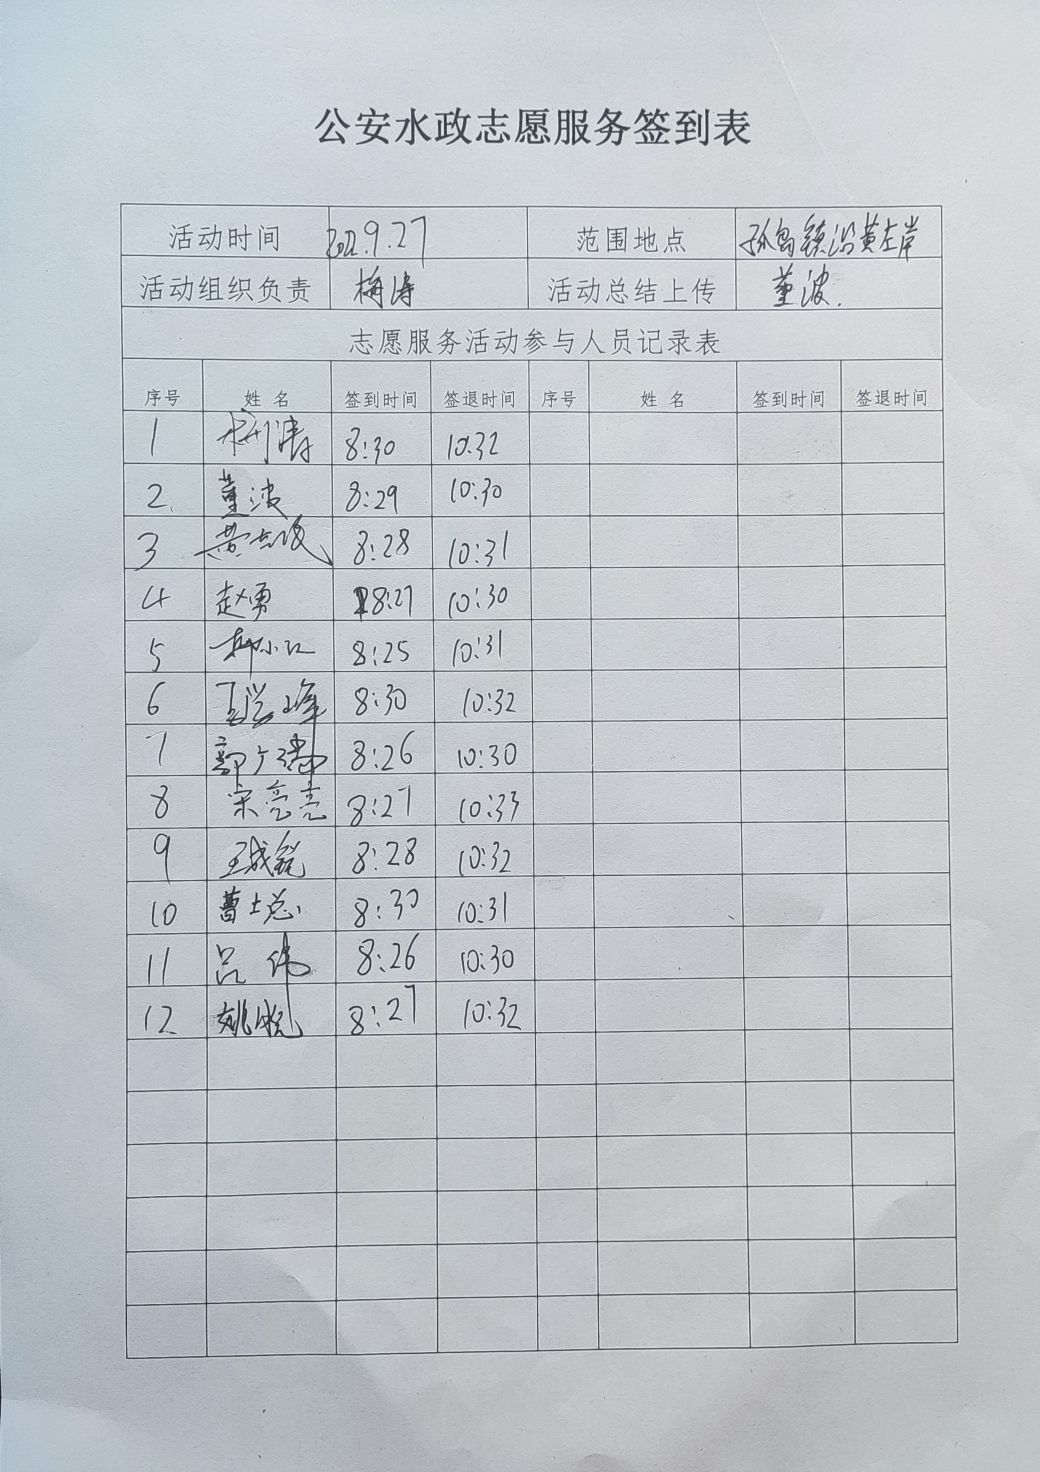 公安水政志愿服务签到表
活动时间 2022.9.27 范围地点 孤岛镇沿黄左岸
活动组织负责 梅涛 活动总结上传 董波.
志愿服务活动参与人员记录表
序号 姓名 签到时间 签退时间 序号 姓名 签到时间 签退时间
1 梅涛 8:30 10:32
2. 董波 8:29 10:30
3 8:28 10:31
4 赵勇 8:27 10:30
5 8:25 10:31
6 8:30 10:32
7 8:26 10:30
8 宋亮亮 8:27 10:33
9 8:28 10:32
10 8:30 10:31
11 吕伟 8:26 10:30
12 8:27 10:32